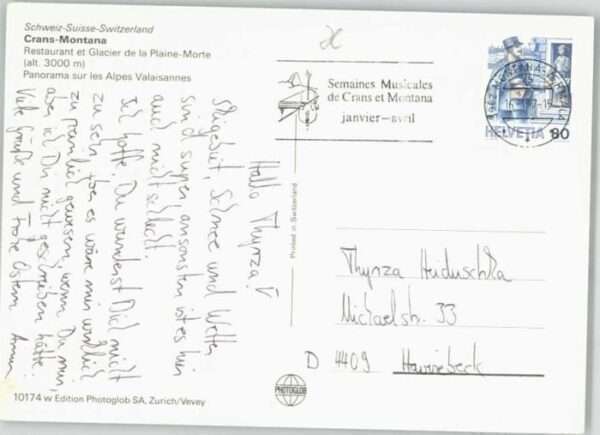 Schweiz-Suisse-Switzerland
Crans-Montana
Restaurant et Glacier de la Plaine-Morte
(alt. 3000 m)
Panorama sur les Alpes Valaisannes
Hallo Thynza!
Skigebiet, Schnee und Wetter
sind super, ansonsten ist es hier
auch nicht schlecht.
Ich hoffe, Du wunderst Dich nicht
zu sehr, aber es wäre mir wirklich
zu peinlich gewesen, wenn Du mir,
aber ich Dir nicht geschrieben hätte.
Viele Grüße und Frohe Ostern
Semaines Musicales
de Crans et Montana
janvier–avril
3962 MONTANA-VERMALA
HELVETIA 90
Printed in Switzerland
Thynza Heiduschka
Michaelstr. 33
D 4409 Havixbeck
PHOTOGLOB
10174 w Edition Photoglob SA, Zurich/Vevey